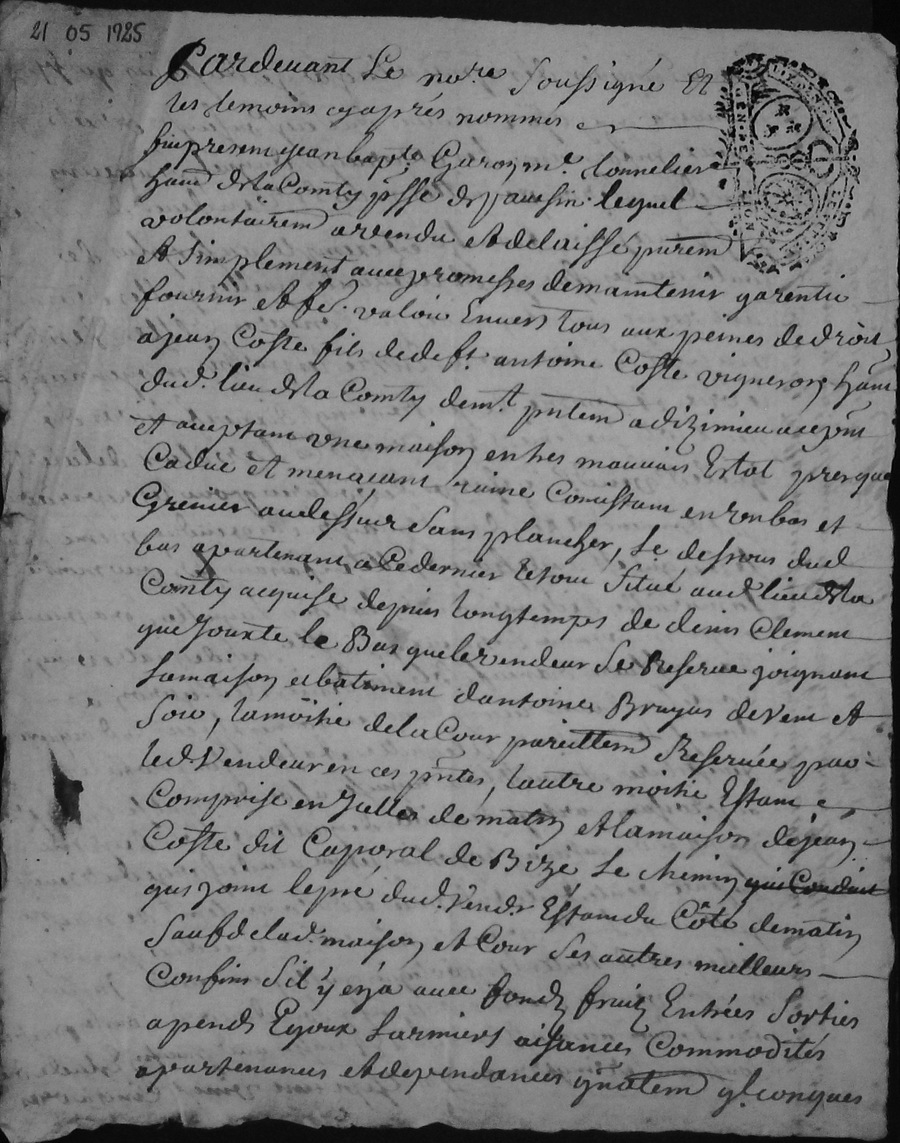 21 05 1725
Pardevant Le nore Soussigné Et
les temoins cyaprés nommés
fut present jean bapte Garoy me. tonnelier
hant de la Comty psse de lequel
volontairem a vendu et delaissé purem
et simplement avec promesses de maintenir garentir
fournir et fe. valoir Envers tous aux peines de droit
a jean Coste fils de deft. antoine Coste vigneron hant
dud. lieu de la Comty demt. pntem a dizimieu acept
et aceptant une maison en tres mauvais Estat presque
Caduc et menaçant ruine Consistant en un bas et
Grenier au dessus Sans plancher, Le dessous dud
bas apartenant a Ce dernier Le tout Situé aud. lieu de la
Comty acquise depuis longtemps de denis Clement
que Jouxte le Bas que le vendeur Se Reserve joignant
La maison et batiment dantoine Bruyas de vent et
Soir, La moitié de la Cour pareillem Reservée par
led. Vendeur en ces pntes, lautre moitié Estant
Comprise en Jcelles de matin et la maison de jean
Coste dit Caporal de Bize Le chemin qui Conduit
qui joint le pré dud. Vendr Estant du Côté de matin
Sauf de lad. maison et Cour Ses autres meilleurs
Confins S'il y en a avec fonds fruits Entrées Sorties
apends Egoux Larmiers aisances Commodités
apartenances et dependances qlconques